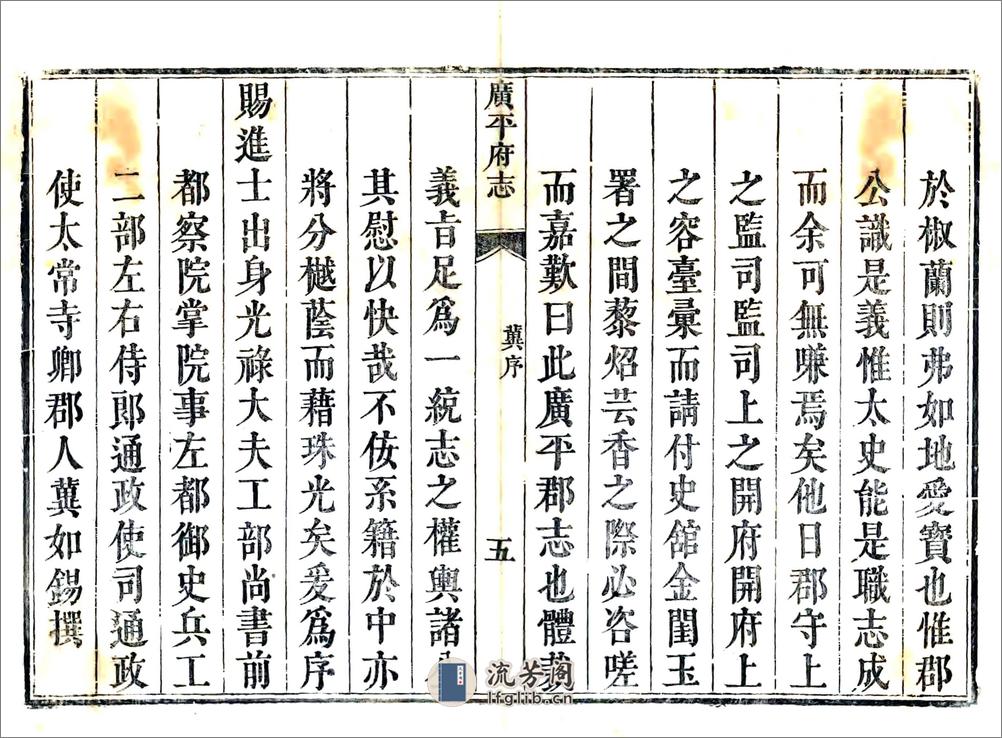 於椒蘭則弗如地愛寶也惟郡
公識是義惟太史能是職志成
而余可無賺焉矣他日郡守上
之監司監司上之開府開府上
之容臺彙而請付史館金閨玉
署之間藜炤芸香之際必咨嗟
而嘉歎曰此廣平郡志也體
廣平府志
冀序
五
義旨足為一統志之權輿諸
其慰以快哉不佞系籍於中亦
將分樾蔭而藉珠光矣爰為序
賜進士出身光祿大夫工部尚書前
都察院掌院事左都御史兵工
二部左右侍郎通政使司通政
使太常寺卿郡人冀如錫撰
流芳閣
lfglib.cn